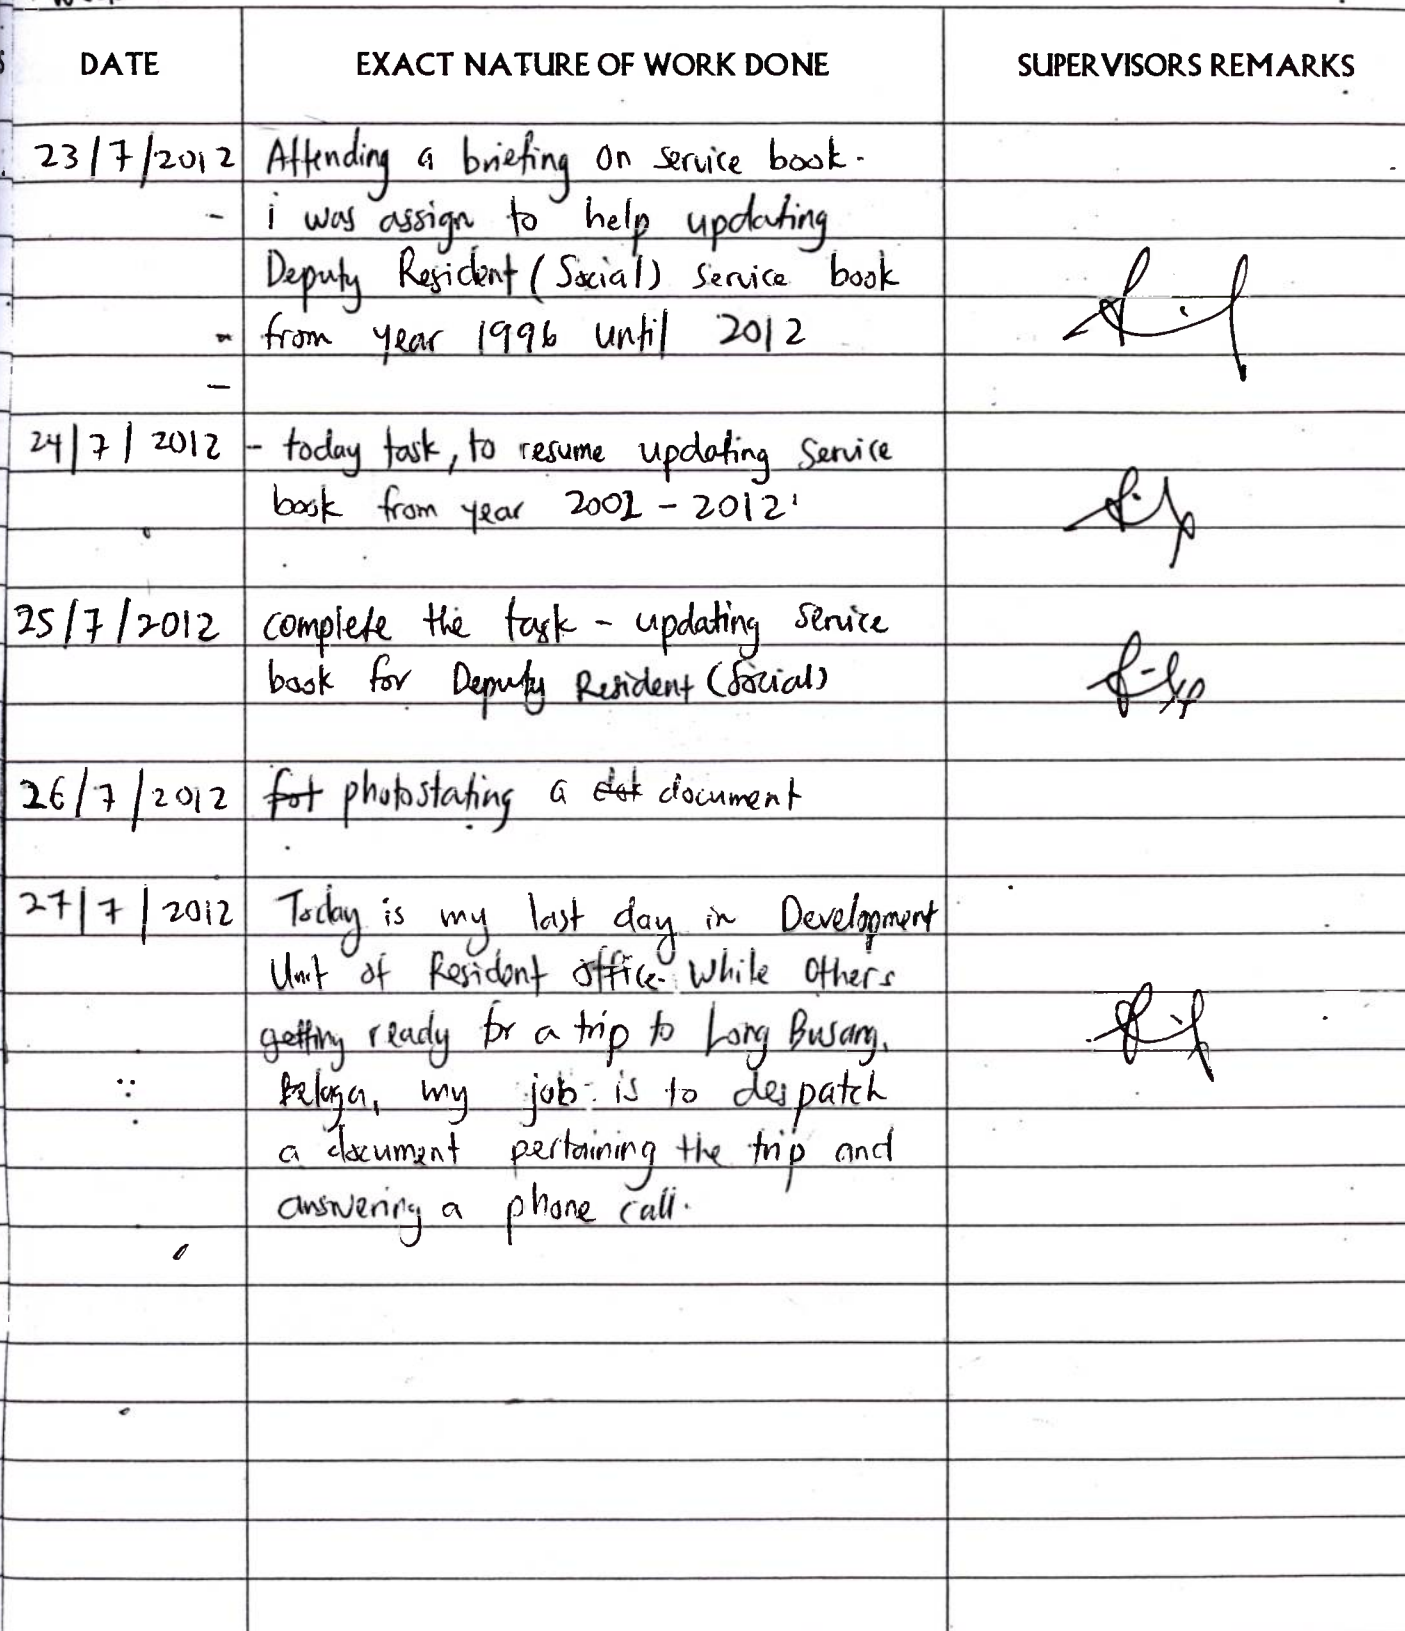 DATE EXACT NATURE OF WORK DONE SUPERVISORS REMARKS
23/7/2012 Attending a briefing on service book.
- i was assign to help updating
Deputy Resident (Social) service book
- from year 1996 until 2012
-
24/7/2012 - today task, to resume updating service
book from year 2002 - 2012
25/7/2012 complete the task - updating service
book for Deputy Resident (Social)
26/7/2012 fot photostating a dok document
27/7/2012 Today is my last day in Development
Unit of Resident office. While others
getting ready for a trip to Long Busang,
Belaga, my job is to despatch
a document pertaining the trip and
answering a phone call.